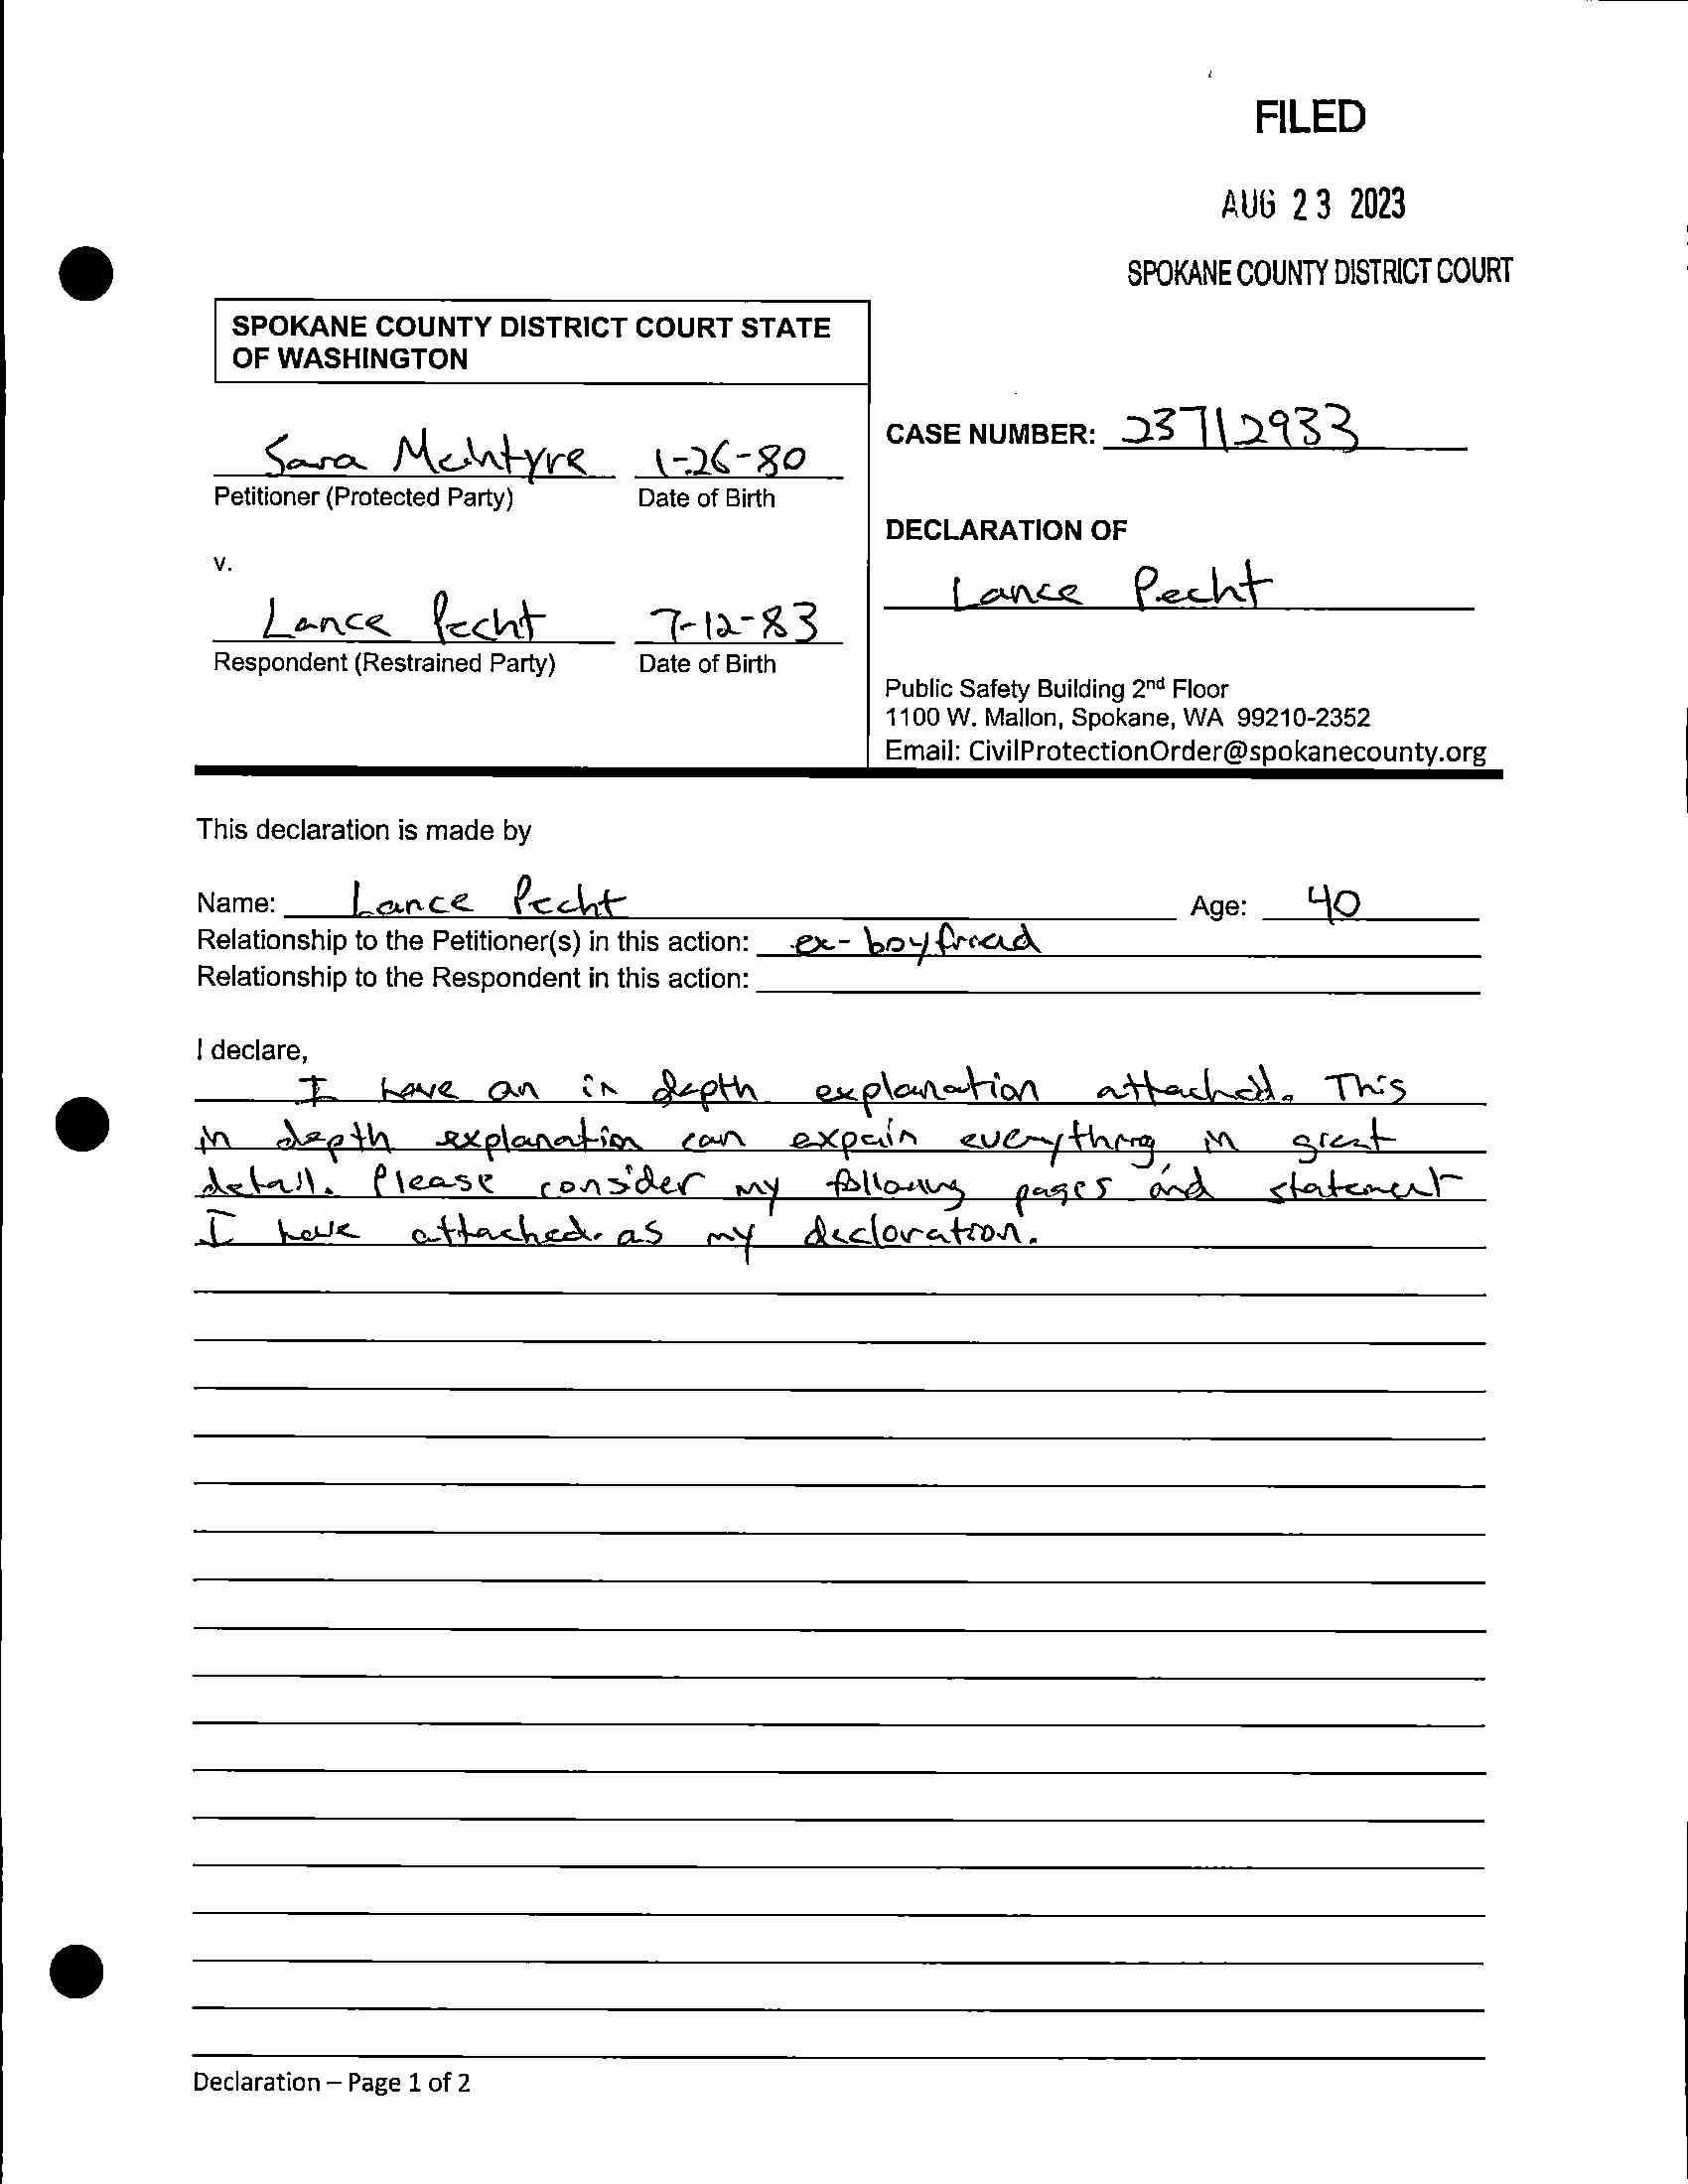 FILED
AUG 23 2023
SPOKANE COUNTY DISTRICT COURT
SPOKANE COUNTY DISTRICT COURT STATE
OF WASHINGTON
CASE NUMBER: 23712933
Sara McIntyre 1-26-80
Petitioner (Protected Party) Date of Birth
DECLARATION OF
v.
Lance Pecht
Lance Pecht 7-12-83
Respondent (Restrained Party) Date of Birth
Public Safety Building 2nd Floor
1100 W. Mallon, Spokane, WA 99210-2352
Email: CivilProtectionOrder@spokanecounty.org
This declaration is made by
Name: Lance Pecht Age: 40
Relationship to the Petitioner(s) in this action: ex-boyfriend
Relationship to the Respondent in this action:
I declare,
I have an in depth explanation attached. This
in depth explanation can expain everything in great
detail. Please consider my following pages and statement
I have attached as my declaration.
Declaration – Page 1 of 2